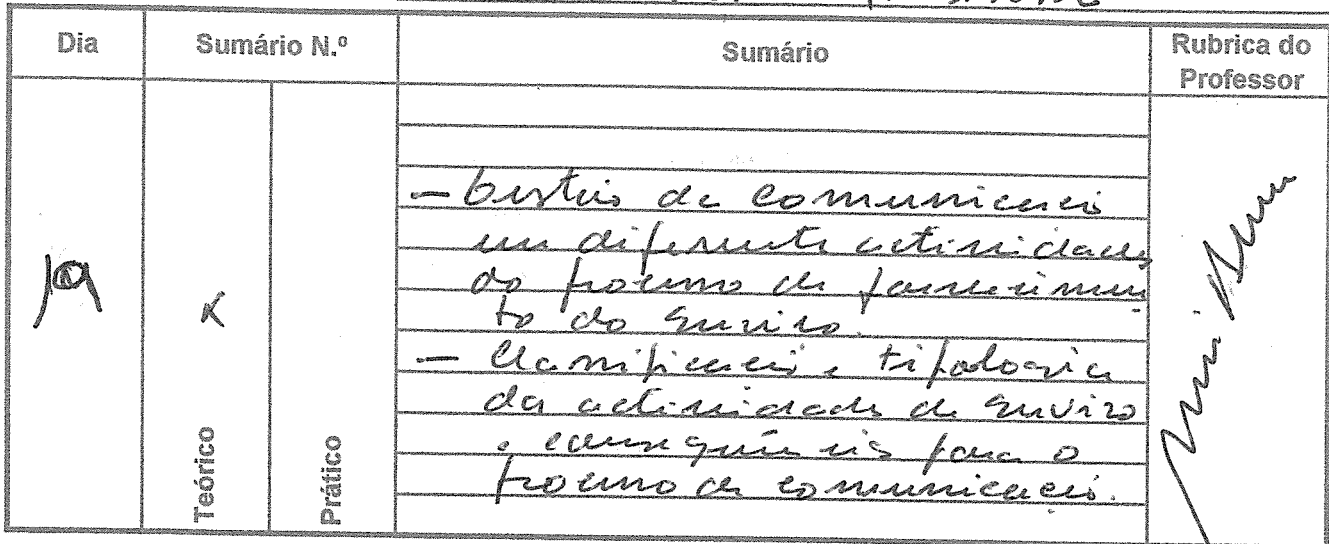 Dia Sumário N.º Sumário Rubrica do Professor
19
x
Teórico
Prático
- Gestão da comunicação
em diferentes actividades
do processo de fornecimen
to do serviço.
- Classificação e tipologia
das actividades de serviço
e consequências para o
processo de comunicação.